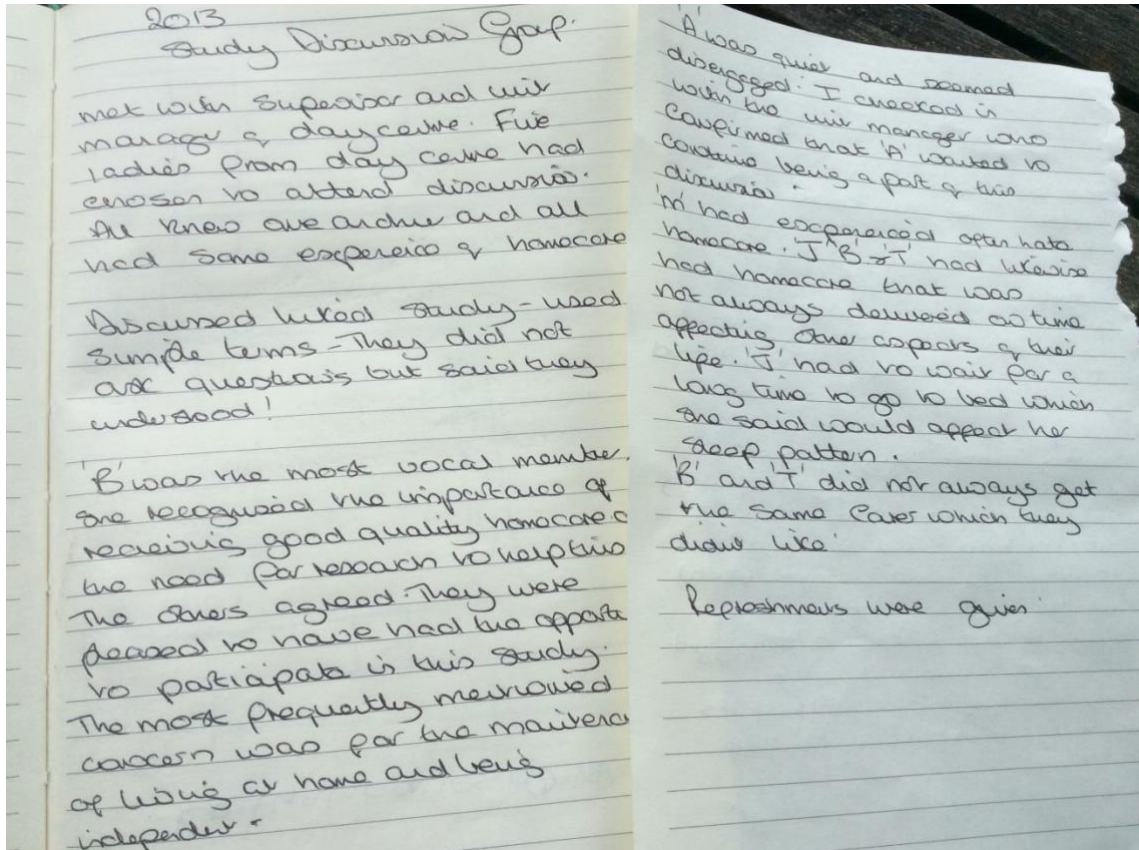 2013
Study Discussion Group.
met with Supervisor and unit
manager of daycentre. Five
ladies from day centre had
chosen to attend discussion.
All knew one another and all
had some experience of homecare
Discussed linked study - used
simple terms - They did not
ask questions but said they
understood!
'B' was the most vocal member.
She recognised the importance of
receiving good quality homecare
the need for research to help this
The others agreed. They were
pleased to have had the opport
to participate in this study.
The most frequently mentioned
concern was for the maintena
of living at home and being
independent.
'A' was quiet and seemed
disengaged. I checked in
with the unit manager who
confirmed that 'A' wanted to
continue being a part of this
discussion.
'M' had experienced often late
homecare. 'J' 'B' & 'T' had likewise
had homecare that was
not always delivered on time
affecting other aspects of their
life. 'J' had to wait for a
long time to go to bed which
she said would affect her
sleep pattern.
'B' and 'T' did not always get
the same carer which they
didn't like.
Refreshments were given.